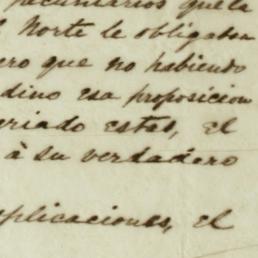 pecuniarios que la
Norte le obligaban
ero que no habiendo
dino esa proposicion
eriado estas, el
à su verdadero
eplicaciones, el